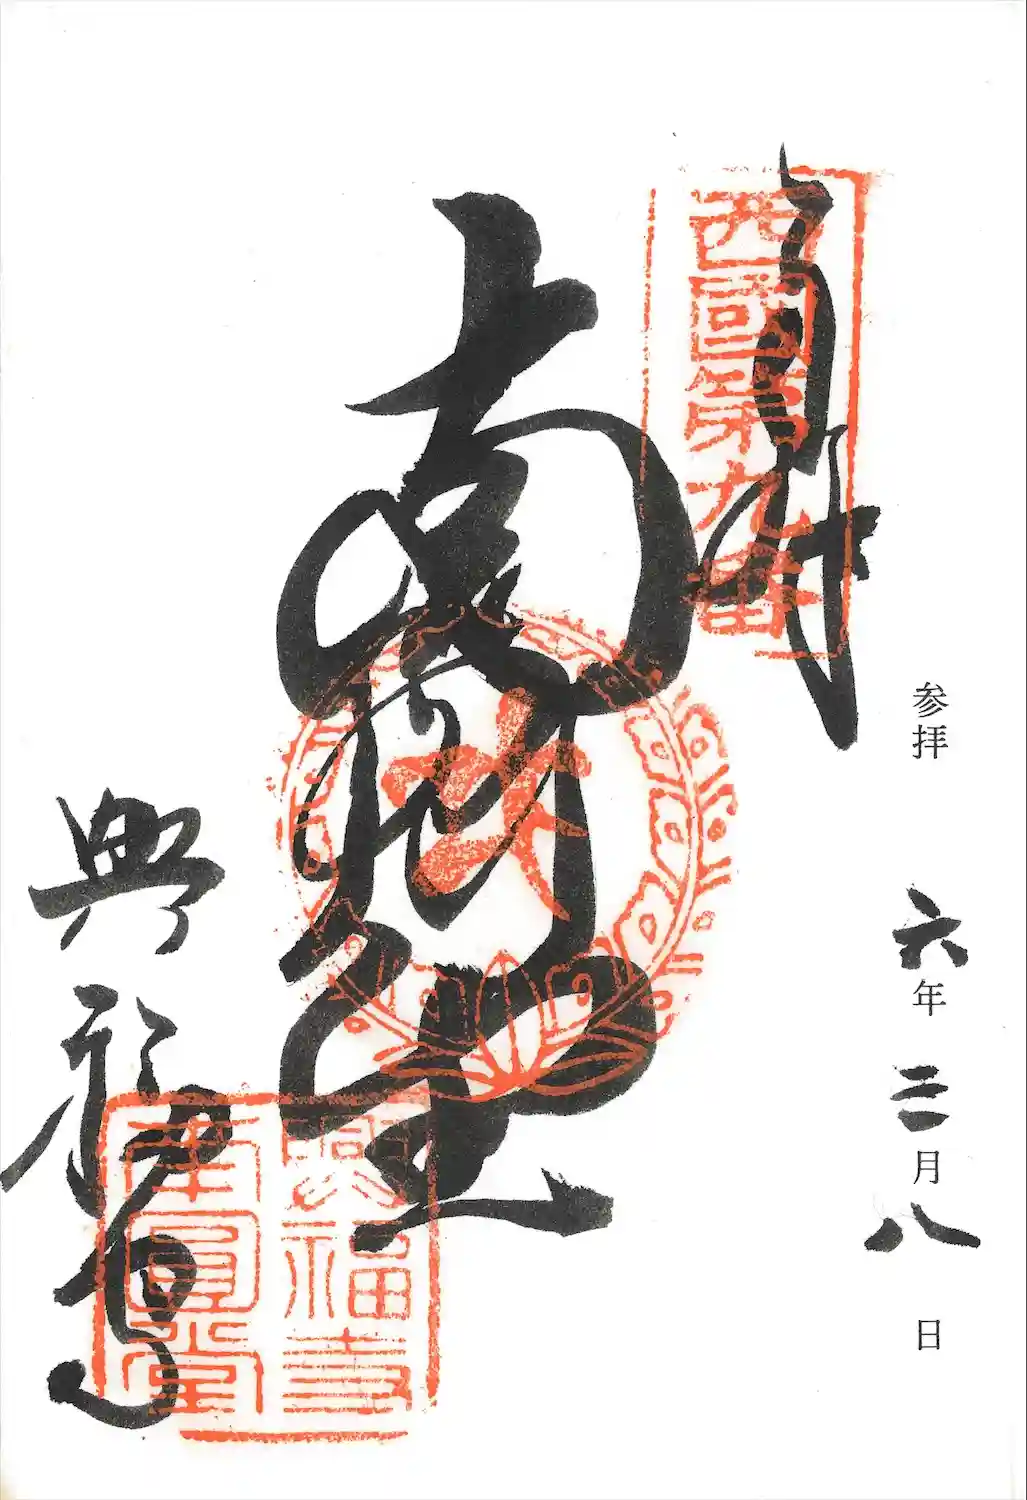 参拝 六年 三月 八日
奉拝
西國第九番
南圓堂
興福寺
興福寺
南圓堂